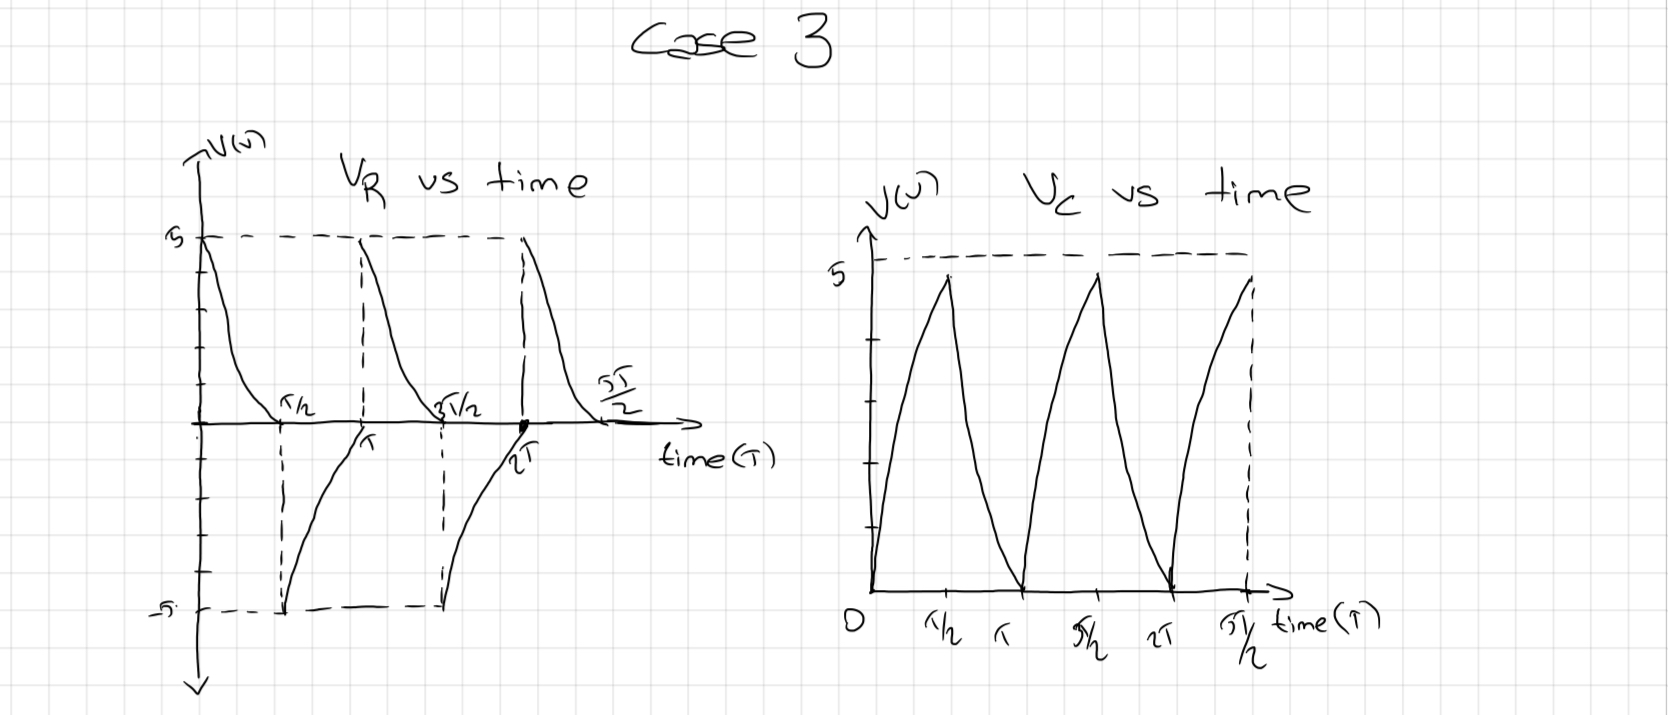 Case 3
V(V)
VR vs time
5
T/2
T
3T/2
2T
5T/2
time(T)
-5
V(V)
VC vs time
5
0
T/2
T
2T
5T/2
time(T)